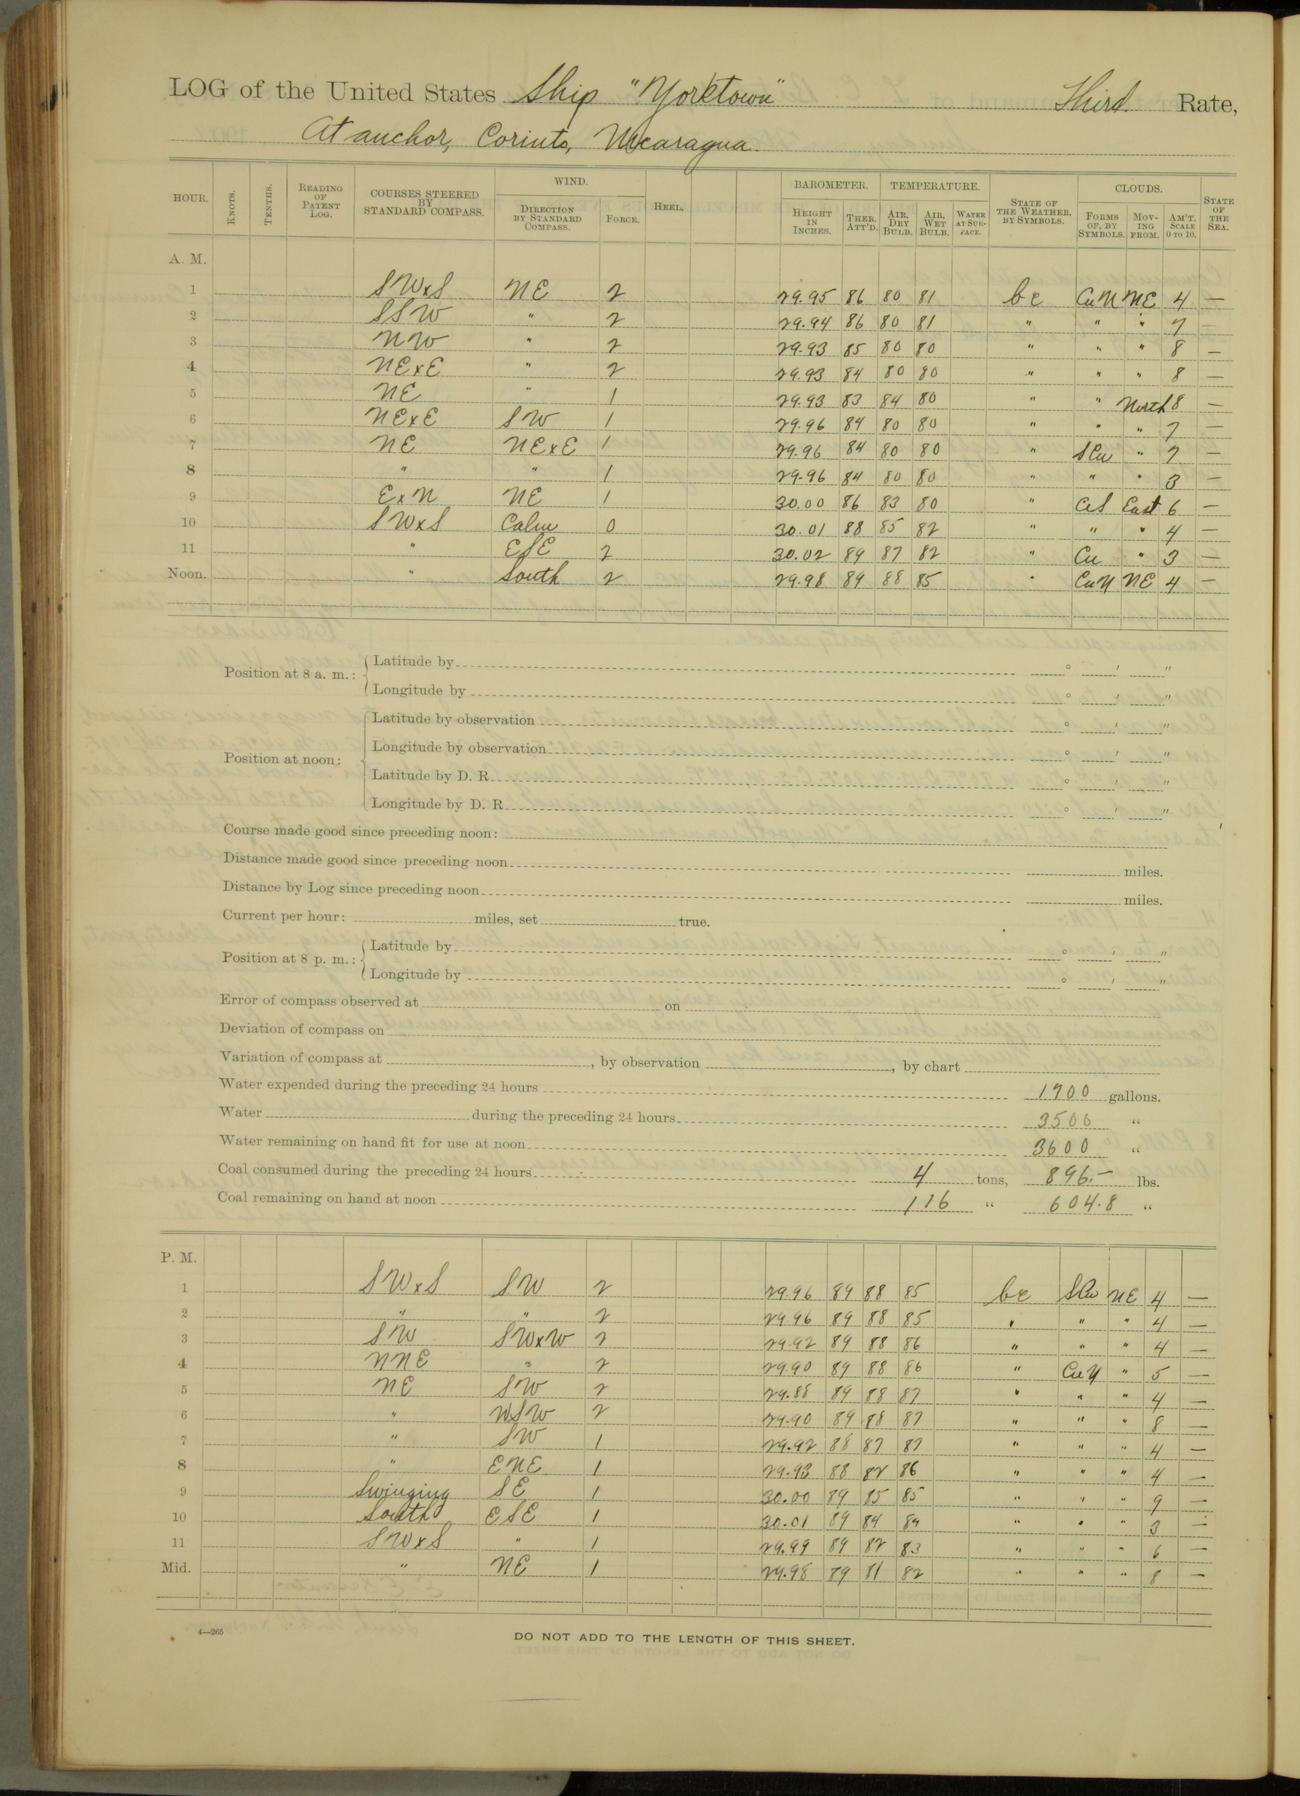 LOG of the United States Ship "Yorktown" Third Rate,
At anchor, Corinto, Nicaragua.
HOUR. KNOTS. TENTHS. READING OF PATENT LOG. COURSES STEERED BY STANDARD COMPASS. WIND. DIRECTION BY STANDARD COMPASS. FORCE. HEEL. BAROMETER. HEIGHT IN INCHES. THER. ATT'D. TEMPERATURE. AIR, DRY BULB. AIR, WET BULB. WATER AT SURFACE. STATE OF THE WEATHER, BY SYMBOLS. CLOUDS. FORMS OF, BY SYMBOLS. MOVING FROM. AM'T. SCALE 0 TO 10. STATE OF THE SEA.
A. M.
1 SWxS NE 2 29.95 86 80 81 bc CuN NE 4 —
2 SSW " 2 29.94 86 80 81 " " " 7 —
3 NW " 2 29.93 85 80 80 " " " 8 —
4 NExE " 2 29.93 84 80 80 " " " 8 —
5 NE " 1 29.93 83 84 80 " " North 8 —
6 NExE SW 1 29.96 84 80 80 " " " 7 —
7 NE NExE 1 29.96 84 80 80 " SCu " 7 —
8 " " 1 29.96 84 80 80 " " " 3 —
9 ExN NE 1 30.00 86 83 80 " CS East 6 —
10 SWxS Calm 0 30.01 88 85 82 " " " 4 —
11 " ESE 2 30.02 89 87 82 " Cu " 3 —
Noon. " South 2 29.98 89 88 85 " CuN NE 4 —
Position at 8 a. m.: Latitude by ° ' "
Longitude by ° ' "
Position at noon: Latitude by observation ° ' "
Longitude by observation ° ' "
Latitude by D. R. ° ' "
Longitude by D. R. ° ' "
Course made good since preceding noon:
Distance made good since preceding noon miles.
Distance by Log since preceding noon miles.
Current per hour: miles, set true.
Position at 8 p. m.: Latitude by ° ' "
Longitude by ° ' "
Error of compass observed at on
Deviation of compass on
Variation of compass at , by observation , by chart
Water expended during the preceding 24 hours 1900 gallons.
Water during the preceding 24 hours 3500 "
Water remaining on hand fit for use at noon 3600 "
Coal consumed during the preceding 24 hours 4 tons, 896.— lbs.
Coal remaining on hand at noon 116 " 604.8 "
P. M.
1 SWxS SW 2 29.96 89 88 85 bc SCu NE 4 —
2 " " 2 29.96 89 88 85 " " " 4 —
3 SW SWxW 2 29.92 89 88 86 " " " 4 —
4 NNE " 2 29.90 89 88 86 " CuN " 5 —
5 NE SW 2 29.88 89 88 87 " " " 4 —
6 " WSW 2 29.90 89 88 87 " " " 8 —
7 " SW 1 29.92 88 87 87 " " " 4 —
8 " ENE 1 29.93 88 82 86 " " " 4 —
9 Swinging SE 1 30.00 89 85 85 " " " 9 —
10 South ESE 1 30.01 89 84 84 " " " 3 —
11 SWxS " 1 29.99 89 82 83 " " " 6 —
Mid. " NE 1 29.98 89 81 82 " " " 8 —
4—265
DO NOT ADD TO THE LENGTH OF THIS SHEET.